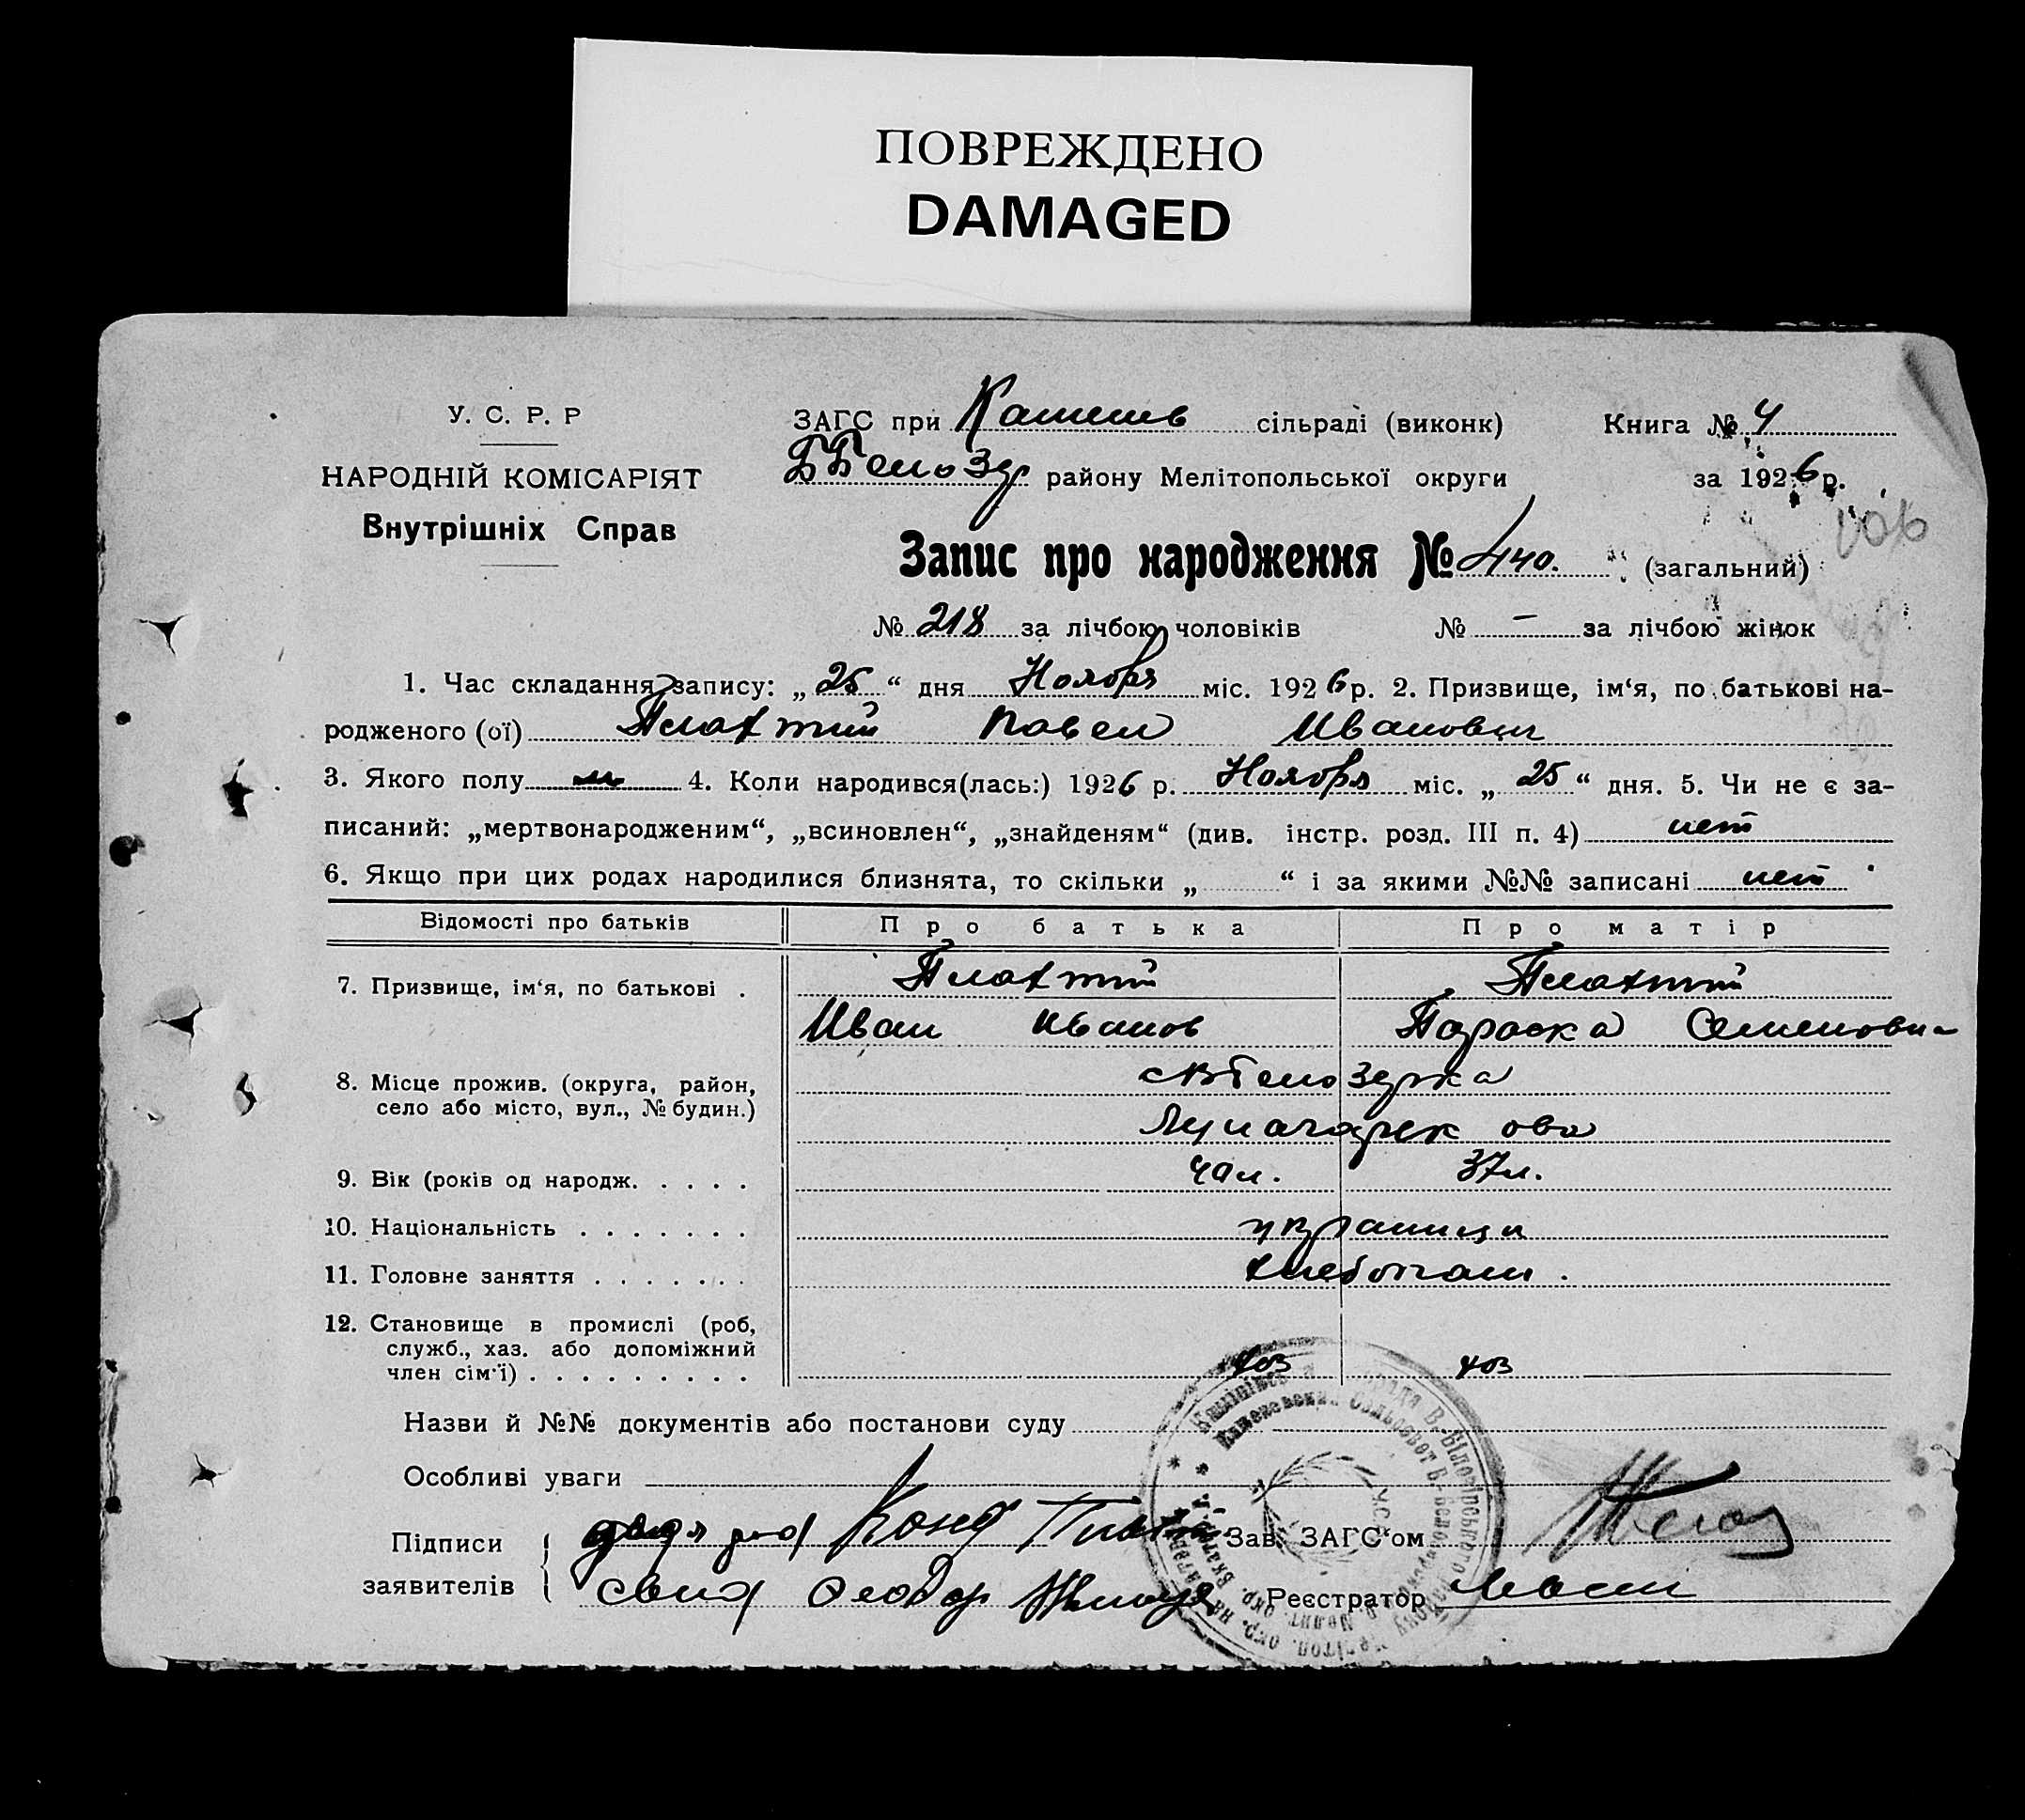 ПОВРЕЖДЕНО
DAMAGED
У. С. Р. Р
НАРОДНІЙ КОМІСАРІЯТ
Внутрішніх Справ
ЗАГС при сільраді (виконк)
району Мелітопольської округи
Книга № 4
за 1926 р.
Запис про народження № 440. (загальний)
№ 218 за лічбою чоловіків № — за лічбою жінок
1. Час складання запису: „25“ дня Ноября міс. 1926 р. 2. Призвище, ім‘я, по батькові на-
родженого (ої) Плахтий Павел Иванович
3. Якого полу м 4. Коли народився(лась:) 1926 р. Ноября міс. „25“ дня. 5. Чи не є за-
писаний: „мертвонародженим“, „всиновлен“, „знайденям“ (див. інстр. розд. III п. 4) нет
6. Якщо при цих родах народилися близнята, то скільки „ “ і за якими №№ записані нет
Відомості про батьків Про батька Про матір
7. Призвище, ім‘я, по батькові . Плахтий Плахтий
Иван Иванов Параска Семеновна
8. Місце прожив. (округа, район,
село або місто, вул., № будин.)
9. Вік (років од народж. . . . . 37 л.
10. Національність . . . . . . . украинцы
11. Головне заняття . . . . . . . хлебопаш.
12. Становище в промислі (роб,
служб., хаз. або допоміжний
член сім‘ї) . . . . . . . . . хоз хоз
Назви й №№ документів або постанови суду
Особливі уваги
Підписи
заявителів
Зав. ЗАГС‘ом
Реєстратор